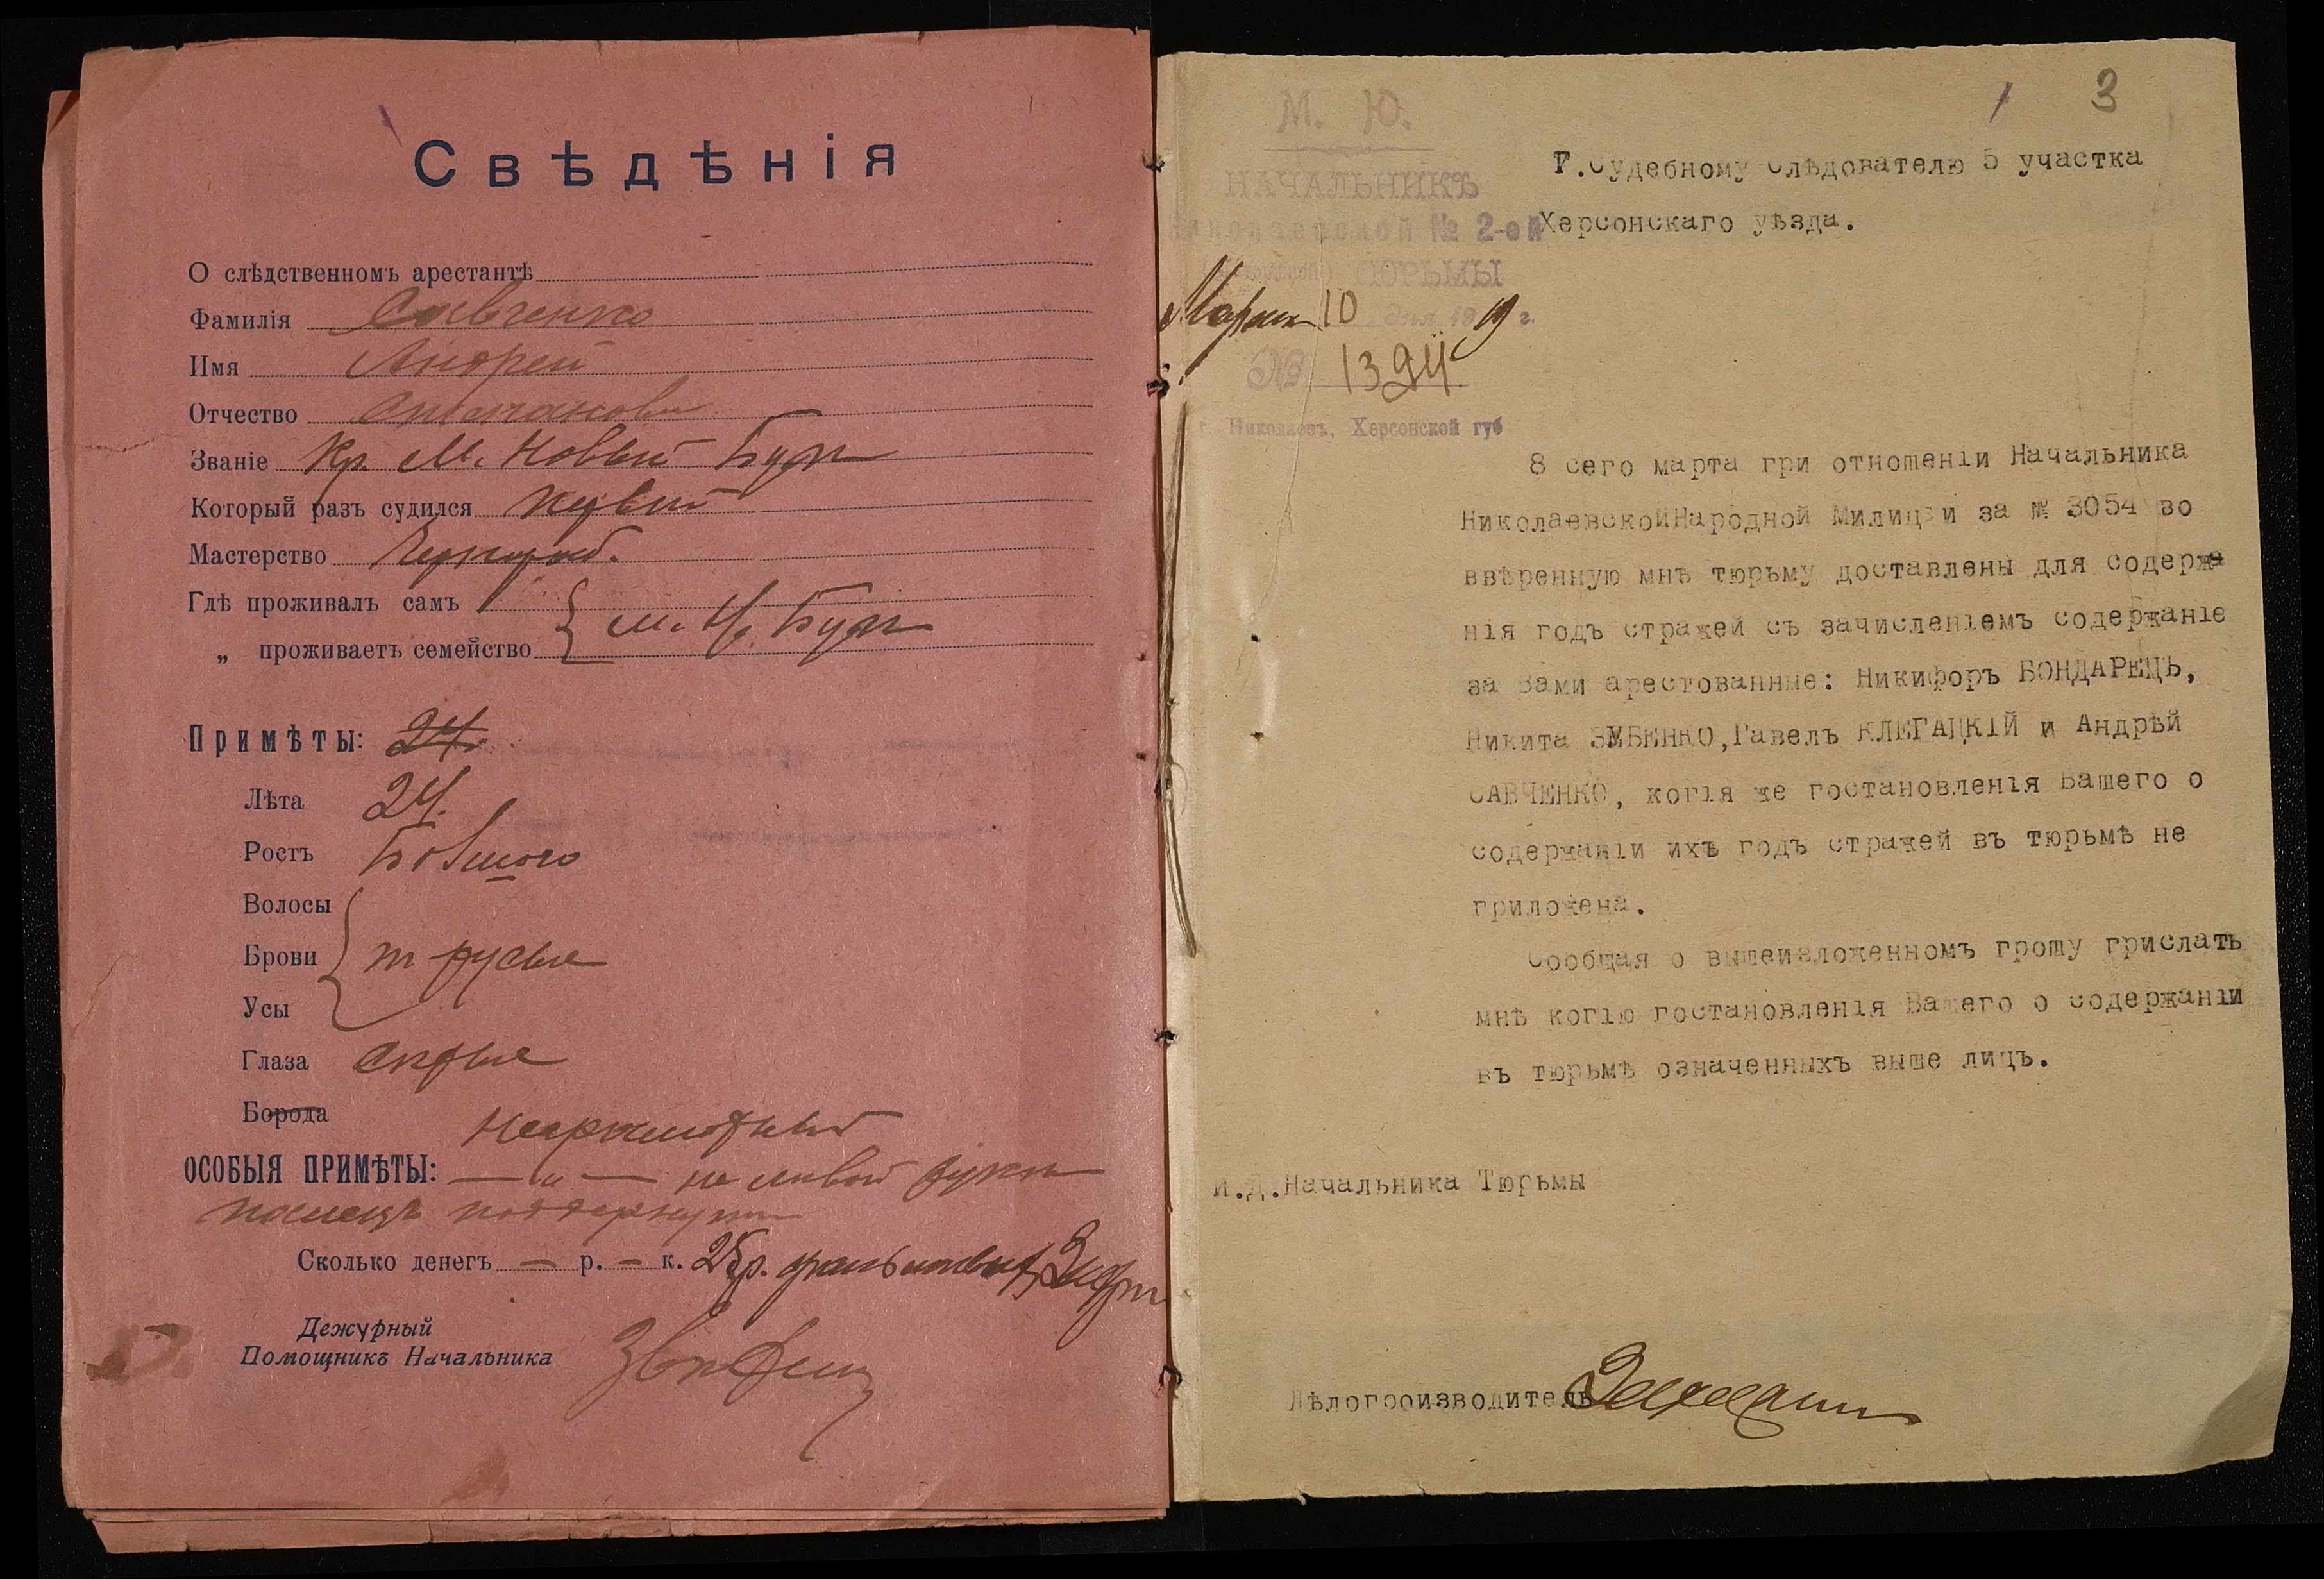 Свѣдѣнія
О слѣдственномъ арестантѣ
Фамилія Савченко
Имя Андрей
Отчество Степанов
Званіе Кр. М. Новый Буг
Который разъ судился первый
Мастерство Чернораб.
Гдѣ проживалъ самъ
„ проживаетъ семейство м. Н Буг
Примѣты: 24
Лѣта 24.
Ростъ
Волосы
Брови т русые
Усы
Глаза серые
Борода
неграмотный
ОСОБЫЯ ПРИМѢТЫ: — „ — на левой руки
палец
Сколько денегъ — р. — к. 25р.
Дежурный
Помощникъ Начальника
3
М. Ю.
НАЧАЛЬНИКЪ
Николаевской № 2-ой
ТЮРЬМЫ
Марта 10 дня 1919 г.
№ 1394
г. Николаевъ, Херсонской губ
Г.Судебному Слѣдователю 5 участка
Херсонскаго уѣзда.
8 сего марта гри отношеніи Начальника
НиколаевскойНародной Милиціи за № 3054 во
ввѣренную мнѣ тюрьму доставлены для содержа
нія годъ стражей съ зачисленіемъ содержаніе
за Вами арестованные: Никифоръ БОНДАРЕЦЪ,
Никита ЗМБЕНКО,Гавелъ КЛЕГАЦКІЙ и Андрѣй
САВЧЕНКО, когія же гостановленія Вашего о
содержаніи ихъ годъ стражей въ тюрьмѣ не
гриложена.
Сообщая о вышеизложенномъ грошу грислать
мнѣ когію гостановленія Вашего о содержаніи
въ тюрьмѣ означенныхъ выше лицъ.
И.д.Начальника Тюрьмы
Дѣлогроизводитель